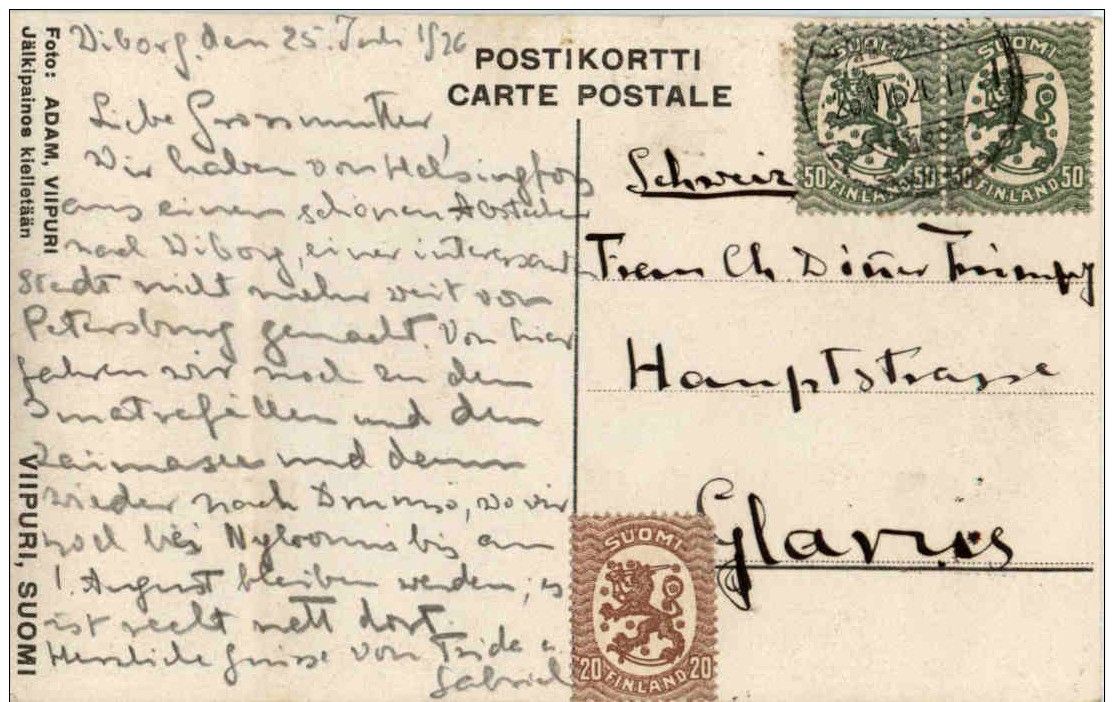 Viborg, den 25. Juli 1926
Liebe Grossmutter,
Wir haben von Helsingfors
aus einen schönen Abstecher
nach Viborg, einer interessanten
Stadt nicht mehr weit von
Petersburg gemacht. Von hier
fahren wir noch zu den
Imatrafällen und dem
Saimasee und dann
wieder nach, wo wir
noch bei bis am
1. August bleiben werden, es
ist recht nett dort.
Herzliche Grüsse von Frida u.
Gabriel
POSTIKORTTI
CARTE POSTALE
Schweiz
Frau Ch. Trümpy
Hauptstrasse
Glarus
SUOMI
50 FINLAND 50
SUOMI
50 FINLAND 50
SUOMI
20 FINLAND 20
Foto: ADAM, VIIPURI
Jälkipainos kielletään
VIIPURI, SUOMI